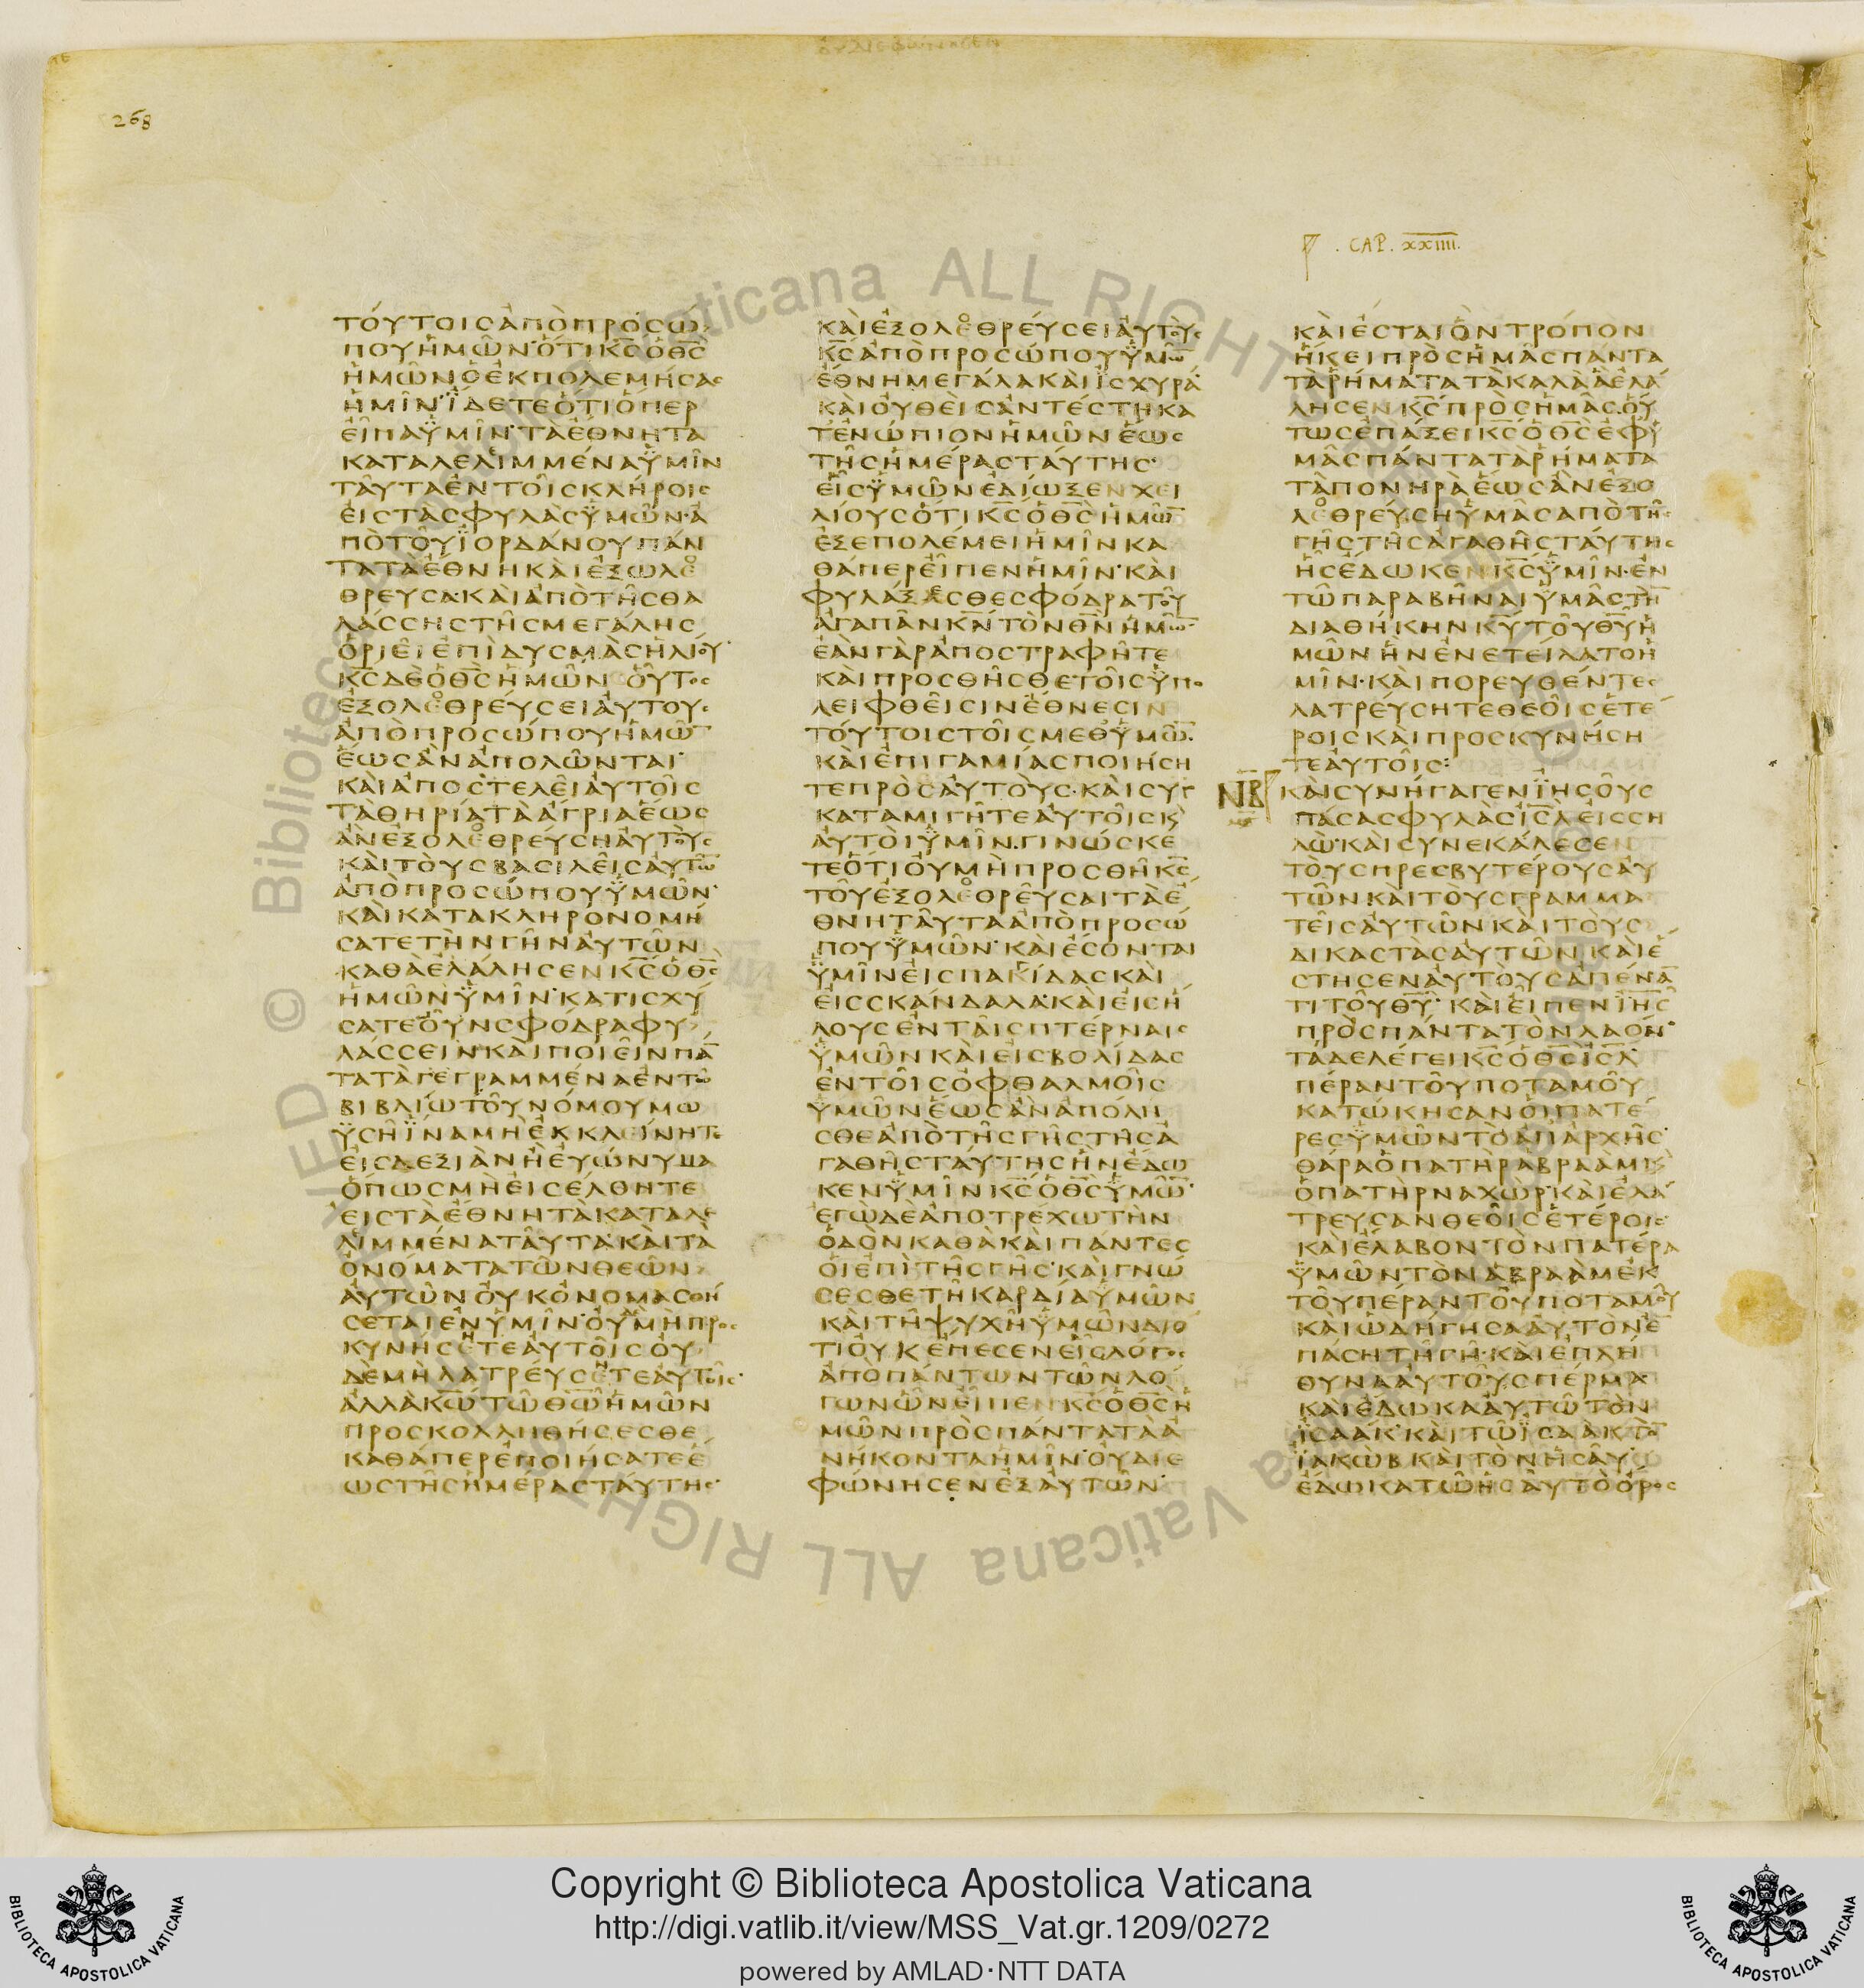 268
CAP. XXIIII.
ΤΟΥΤΟΙΣ ΑΠΟ ΠΡΟΣΩ
ΠΟΥ ΗΜΩΝ ΟΤΙ ΚΣ Ο ΘΣ
ΗΜΩΝ Ο ΕΚΠΟΛΕΜΗΣΑΣ
ΗΜΙΝ ΪΔΕΤΕ ΟΤΙ ΟΠΕΡ
ΕΙΠΑ ΫΜΙΝ ΤΑ ΕΘΝΗ ΤΑ
ΚΑΤΑΛΕΛΙΜΜΕΝΑ ΫΜΙΝ
ΤΑΥΤΑ ΕΝ ΤΟΙΣ ΚΛΗΡΟΙΣ
ΕΙΣ ΤΑΣ ΦΥΛΑΣ ΫΜΩΝ Α
ΠΟ ΤΟΥ ΪΟΡΔΑΝΟΥ ΠΑΝ
ΤΑ ΤΑ ΕΘΝΗ ΚΑΙ ΕΞΩΛΕ
ΘΡΕΥΣΑ ΚΑΙ ΑΠΟ ΤΗΣ ΘΑ
ΛΑΣΣΗΣ ΤΗΣ ΜΕΓΑΛΗΣ
ΟΡΙΕΙ ΕΠΙ ΔΥΣΜΑΣ ΗΛΙΟΥ
ΚΣ ΔΕ Ο ΘΣ ΗΜΩΝ ΟΥΤΟΣ
ΕΞΟΛΕΘΡΕΥΣΕΙ ΑΥΤΟΥΣ
ΑΠΟ ΠΡΟΣΩΠΟΥ ΗΜΩ̅
ΕΩΣ ΑΝ ΑΠΟΛΩΝΤΑΙ
ΚΑΙ ΑΠΟΣΤΕΛΕΙ ΑΥΤΟΙΣ
ΤΑ ΘΗΡΙΑ ΤΑ ΑΓΡΙΑ ΕΩΣ
ΑΝ ΕΞΟΛΕΘΡΕΥΣΗ ΑΥΤΟΥΣ
ΚΑΙ ΤΟΥΣ ΒΑΣΙΛΕΙΣ ΑΥΤΩ̅
ΑΠΟ ΠΡΟΣΩΠΟΥ ΫΜΩΝ
ΚΑΙ ΚΑΤΑΚΛΗΡΟΝΟΜΗ
ΣΑΤΕ ΤΗΝ ΓΗΝ ΑΥΤΩΝ
ΚΑΘΑ ΕΛΑΛΗΣΕΝ ΚΣ Ο ΘΣ
ΗΜΩΝ ΫΜΙΝ ΚΑΤΙΣΧΥ
ΣΑΤΕ ΟΥΝ ΣΦΟΔΡΑ ΦΥ
ΛΑΣΣΕΙΝ ΚΑΙ ΠΟΙΕΙΝ ΠΑ̅
ΤΑ ΤΑ ΓΕΓΡΑΜΜΕΝΑ ΕΝ ΤΩ
ΒΙΒΛΙΩ ΤΟΥ ΝΟΜΟΥ ΜΩ
ΫΣΗ ΪΝΑ ΜΗ ΕΚΚΛΕΙΝΗΤΕ
ΕΙΣ ΔΕΞΙΑΝ Η ΕΥΩΝΥΜΑ
ΟΠΩΣ ΜΗ ΕΙΣΕΛΘΗΤΕ
ΕΙΣ ΤΑ ΕΘΝΗ ΤΑ ΚΑΤΑΛΕ
ΛΙΜΜΕΝΑ ΤΑΥΤΑ ΚΑΙ ΤΑ
ΟΝΟΜΑΤΑ ΤΩΝ ΘΕΩΝ
ΑΥΤΩΝ ΟΥΚ ΟΝΟΜΑΣΘΗ
ΣΕΤΑΙ ΕΝ ΫΜΙΝ ΟΥ ΜΗ ΠΡΟΣ
ΚΥΝΗΣΕΤΕ ΑΥΤΟΙΣ ΟΥ
ΔΕ ΜΗ ΛΑΤΡΕΥΣΕΤΕ ΑΥΤΟΙΣ
ΑΛΛΑ ΚΩ ΤΩ ΘΩ ΗΜΩΝ
ΠΡΟΣΚΟΛΛΗΘΗΣΕΣΘΕ
ΚΑΘΑΠΕΡ ΕΠΟΙΗΣΑΤΕ Ε
ΩΣ ΤΗΣ ΗΜΕΡΑΣ ΤΑΥΤΗΣ
ΚΑΙ ΕΞΟΛΕΘΡΕΥΣΕΙ ΑΥΤΟΥΣ
ΚΣ ΑΠΟ ΠΡΟΣΩΠΟΥ ΫΜΩ̅
ΕΘΝΗ ΜΕΓΑΛΑ ΚΑΙ ΪΣΧΥΡΑ
ΚΑΙ ΟΥΘΕΙΣ ΑΝΤΕΣΤΗ ΚΑ
ΤΕΝΩΠΙΟΝ ΗΜΩΝ ΕΩΣ
ΤΗΣ ΗΜΕΡΑΣ ΤΑΥΤΗΣ
ΕΙΣ ΫΜΩΝ ΕΔΙΩΞΕΝ ΧΕΙ
ΛΙΟΥΣ ΟΤΙ ΚΣ Ο ΘΣ ΗΜΩ̅
ΕΞΕΠΟΛΕΜΕΙ ΗΜΙΝ ΚΑ
ΘΑΠΕΡ ΕΙΠΕΝ ΗΜΙΝ ΚΑΙ
ΦΥΛΑΞΑΣΘΕ ΣΦΟΔΡΑ ΤΟΥ
ΑΓΑΠΑΝ ΚΝ ΤΟΝ ΘΝ ΗΜΩ̅
ΕΑΝ ΓΑΡ ΑΠΟΣΤΡΑΦΗΤΕ
ΚΑΙ ΠΡΟΣΘΗΣΘΕ ΤΟΙΣ ΫΠΟ
ΛΕΙΦΘΕΙΣΙΝ ΕΘΝΕΣΙΝ
ΤΟΥΤΟΙΣ ΤΟΙΣ ΜΕΘ ΫΜΩ̅
ΚΑΙ ΕΠΙΓΑΜΙΑΣ ΠΟΙΗΣΗ
ΤΕ ΠΡΟΣ ΑΥΤΟΥΣ ΚΑΙ ΣΥΓ
ΚΑΤΑΜΙΓΗΤΕ ΑΥΤΟΙΣ Κ
ΑΥΤΟΙ ΫΜΙΝ ΓΙΝΩΣΚΕ
ΤΕ ΟΤΙ ΟΥ ΜΗ ΠΡΟΣΘΗ ΚΣ
ΤΟΥ ΕΞΟΛΕΘΡΕΥΣΑΙ ΤΑ Ε
ΘΝΗ ΤΑΥΤΑ ΑΠΟ ΠΡΟΣΩ
ΠΟΥ ΫΜΩΝ ΚΑΙ ΕΣΟΝΤΑΙ
ΫΜΙΝ ΕΙΣ ΠΑΓΙΔΑΣ ΚΑΙ
ΕΙΣ ΣΚΑΝΔΑΛΑ ΚΑΙ ΕΙΣ Η
ΛΟΥΣ ΕΝ ΤΑΙΣ ΠΤΕΡΝΑΙΣ
ΫΜΩΝ ΚΑΙ ΕΙΣ ΒΟΛΙΔΑΣ
ΕΝ ΤΟΙΣ ΟΦΘΑΛΜΟΙΣ
ΫΜΩΝ ΕΩΣ ΑΝ ΑΠΟΛΗ
ΣΘΕ ΑΠΟ ΤΗΣ ΓΗΣ ΤΗΣ Α
ΓΑΘΗΣ ΤΑΥΤΗΣ ΗΝ ΕΔΩ
ΚΕΝ ΫΜΙΝ ΚΣ Ο ΘΣ ΫΜΩ̅
ΕΓΩ ΔΕ ΑΠΟΤΡΕΧΩ ΤΗΝ
ΟΔΟΝ ΚΑΘΑ ΚΑΙ ΠΑΝΤΕΣ
ΟΙ ΕΠΙ ΤΗΣ ΓΗΣ ΚΑΙ ΓΝΩ
ΣΕΣΘΕ ΤΗ ΚΑΡΔΙΑ ΫΜΩΝ
ΚΑΙ ΤΗ ΨΥΧΗ ΫΜΩΝ ΔΙΟ
ΤΙ ΟΥΚ ΕΠΕΣΕΝ ΕΙΣ ΛΟΓΟΣ
ΑΠΟ ΠΑΝΤΩΝ ΤΩΝ ΛΟ
ΓΩΝ ΩΝ ΕΙΠΕΝ ΚΣ Ο ΘΣ Η
ΜΩΝ ΠΡΟΣ ΠΑΝΤΑ ΤΑ Α
ΝΗΚΟΝΤΑ ΗΜΙΝ ΟΥ ΔΙΕ
ΦΩΝΗΣΕΝ ΕΞ ΑΥΤΩΝ
ΚΑΙ ΕΣΤΑΙ ΟΝ ΤΡΟΠΟΝ
ΗΚΕΙ ΠΡΟΣ ΗΜΑΣ ΠΑΝΤΑ
ΤΑ ΡΗΜΑΤΑ ΤΑ ΚΑΛΑ Α ΕΛΑ
ΛΗΣΕΝ ΚΣ ΠΡΟΣ ΗΜΑΣ ΟΥ
ΤΩΣ ΕΠΑΞΕΙ ΚΣ Ο ΘΣ ΕΦ Ϋ
ΜΑΣ ΠΑΝΤΑ ΤΑ ΡΗΜΑΤΑ
ΤΑ ΠΟΝΗΡΑ ΕΩΣ ΑΝ ΕΞΟ
ΛΕΘΡΕΥΣΗ ΫΜΑΣ ΑΠΟ ΤΗΣ
ΓΗΣ ΤΗΣ ΑΓΑΘΗΣ ΤΑΥΤΗΣ
ΗΣ ΕΔΩΚΕΝ ΚΣ ΫΜΙΝ ΕΝ
ΤΩ ΠΑΡΑΒΗΝΑΙ ΫΜΑΣ ΤΗ̅
ΔΙΑΘΗΚΗΝ ΚΥ ΤΟΥ ΘΥ Η
ΜΩΝ ΗΝ ΕΝΕΤΕΙΛΑΤΟ Η
ΜΙΝ ΚΑΙ ΠΟΡΕΥΘΕΝΤΕΣ
ΛΑΤΡΕΥΣΗΤΕ ΘΕΟΙΣ ΕΤΕ
ΡΟΙΣ ΚΑΙ ΠΡΟΣΚΥΝΗΣΗ
ΤΕ ΑΥΤΟΙΣ:
ΝΒ ΚΑΙ ΣΥΝΗΓΑΓΕΝ ΪΗΣΟΥΣ
ΠΑΣΑΣ ΦΥΛΑΣ ΙΣΛ ΕΙΣ ΣΗ
ΛΩ ΚΑΙ ΣΥΝΕΚΑΛΕΣΕΝ
ΤΟΥΣ ΠΡΕΣΒΥΤΕΡΟΥΣ ΑΥ
ΤΩΝ ΚΑΙ ΤΟΥΣ ΓΡΑΜΜΑ
ΤΕΙΣ ΑΥΤΩΝ ΚΑΙ ΤΟΥΣ
ΔΙΚΑΣΤΑΣ ΑΥΤΩΝ ΚΑΙ Ε
ΣΤΗΣΕΝ ΑΥΤΟΥΣ ΑΠΕΝΑ̅
ΤΙ ΤΟΥ ΘΥ ΚΑΙ ΕΙΠΕΝ ΙΗΣ
ΠΡΟΣ ΠΑΝΤΑ ΤΟΝ ΛΑΟΝ
ΤΑΔΕ ΛΕΓΕΙ ΚΣ Ο ΘΣ ΙΣΛ
ΠΕΡΑΝ ΤΟΥ ΠΟΤΑΜΟΥ
ΚΑΤΩΚΗΣΑΝ ΟΙ ΠΑΤΕ
ΡΕΣ ΫΜΩΝ ΤΟ ΑΠ ΑΡΧΗΣ
ΘΑΡΑ Ο ΠΑΤΗΡ ΑΒΡΑΑΜ Κ
Ο ΠΑΤΗΡ ΝΑΧΩΡ ΚΑΙ ΕΛΑ
ΤΡΕΥΣΑΝ ΘΕΟΙΣ ΕΤΕΡΟΙΣ
ΚΑΙ ΕΛΑΒΟΝ ΤΟΝ ΠΑΤΕΡΑ
ΫΜΩΝ ΤΟΝ ΑΒΡΑΑΜ ΕΚ
ΤΟΥ ΠΕΡΑΝ ΤΟΥ ΠΟΤΑΜΟΥ
ΚΑΙ ΩΔΗΓΗΣΑ ΑΥΤΟΝ Ε̅
ΠΑΣΗ ΤΗ ΓΗ ΚΑΙ ΕΠΛΗ
ΘΥΝΑ ΑΥΤΟΥ ΣΠΕΡΜΑ
ΚΑΙ ΕΔΩΚΑ ΑΥΤΩ ΤΟΝ
ΪΣΑΑΚ ΚΑΙ ΤΩ ΪΣΑΑΚ ΤΟ̅
ΪΑΚΩΒ ΚΑΙ ΤΟΝ ΗΣΑΥ
ΕΔΩΚΑ ΤΩ ΗΣΑΥ ΤΟ ΟΡΟΣ
Copyright © Biblioteca Apostolica Vaticana
http://digi.vatlib.it/view/MSS_Vat.gr.1209/0272
powered by AMLAD·NTT DATA
BIBLIOTECA APOSTOLICA VATICANA
BIBLIOTECA APOSTOLICA VATICANA